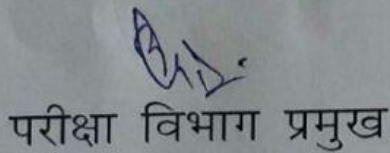 परीक्षा विभाग प्रमुख